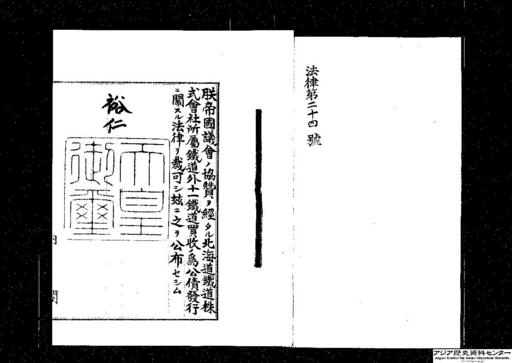 法律第二十四號
朕帝國議會ノ協贊ヲ經タル北海道鐵道株
式會社所屬鐵道外十一鐵道買收ノ爲公債發行
ニ關スル法律ヲ裁可シ玆ニ之ヲ公布セシム
裕仁
天皇
御璽
内
閣
アジア歴史資料センター
Japan Center for Asian Historical Records